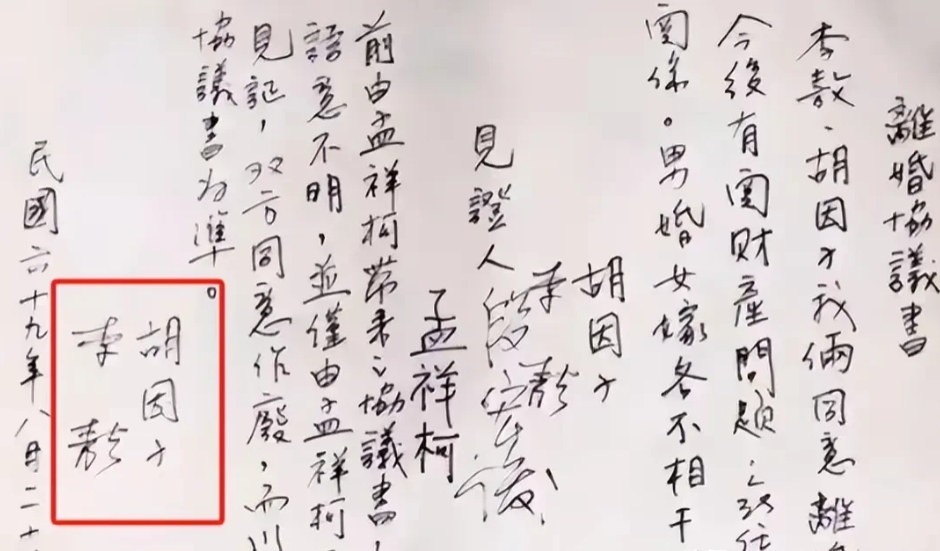 離婚協議書
李敖、胡因子我倆同意離
今後有関財産問題之
関係。男婚女嫁各不相干
胡因子
李敖
見證人段宏俊
孟祥柯
前由孟祥柯帶来之協議書，
語意不明，並僅由孟祥柯
見証，双方同意作廢，而
協議書为準。
胡因子
李敖
民國六十九年八月二十